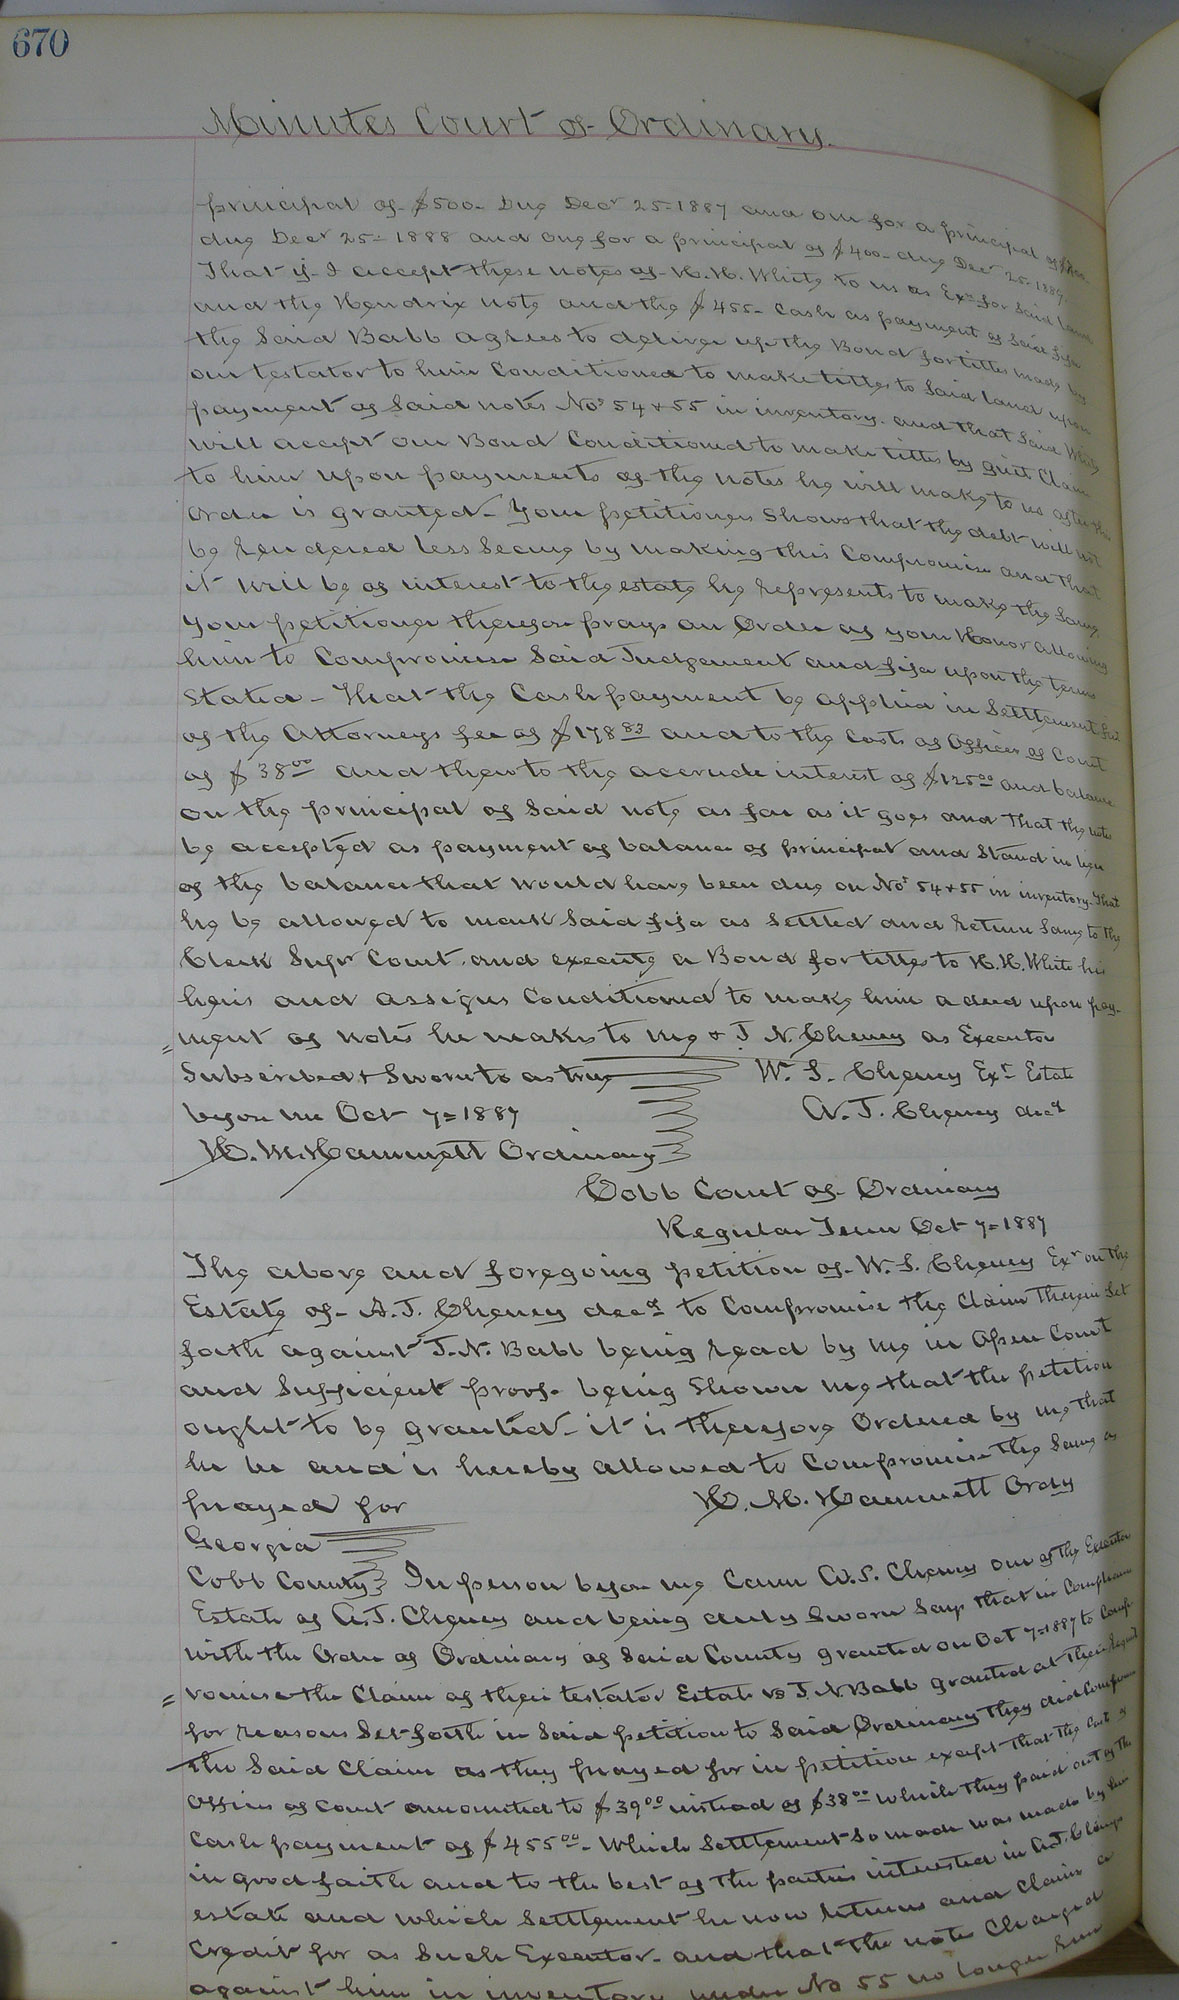 670
Minutes Court of Ordinary.
principal of $500- Due Decr 25-1887 and one for a principal of
due Decr 25= 1888 and one for a principal of $400- due Decr 25-1889.
That if I accept these notes of H. H. White to us as Exrs for said land
and the Hendrix note and the $455- Cash as payment of said fifa
the said Babb agrees to deliver up the Bond for titles made by
our testator to him Conditioned to make titles to said land upon
payment of said notes Nos 54 & 55 in inventory. and that said White
will accept our Bond Conditioned to make titles by quit Claim
to him upon payments of the notes he will make to us after this
order is granted- Your petitioner shows that the debt will not
be rendered less secure by making this Compromise and that
it will be of interest to the estate he represents to make the same
Your petitioner therefore prays an Order of your Honor allowing
him to Compromise said Judgement and fifa upon the terms
stated- That the Cash payment be applied in settlement first
of the Attorneys fee of $178 83 and to the Costs of Officers of Court
of $38 00 and then to the accrude interest of $125 00 and balance
on the principal of said note as far as it goes and that the notes
be accepted as payment of balance of principal and stand in lieu
of the balance that would have been due on Nos 54 & 55 in inventory. That
he be allowed to mark said fifa as settled and return same to the
Clerk Supr Court. and execute a Bond for titles to H. H. White his
heirs and assigns Conditioned to make him a deed upon pay-
ment of notes he makes to me & J. N. Cheney as Executor
Subscribed & Sworn to as true W. S. Cheney Exr Estate
before me Oct 7= 1887 A. J. Cheney decd
H. M. Hammett Ordinary
Cobb Court of Ordinary
Regular Term Oct 7= 1887
The above and foregoing petition of W. S. Cheney Exr on the
Estate of A. J. Cheney decd to Compromise the Claim therein set
forth against J. N. Babb being read by me in Open Court
and sufficient proof being shown me that the petition
ought to be granted- it is therefore Ordered by me that
he be and is hereby allowed to Compromise the same as
prayed for H. M. Hammett Ordy
Georgia
Cobb County In person before me came W. S. Cheney one of the Executors
Estate of A. J. Cheney and being duly sworn says that in Compliance
with the Order of Ordinary of said County granted on Oct 7=1887 to Comp-
romise the Claim of their testator Estate vs J. N. Babb granted at their request
for reasons set forth in said petition to said Ordinary they did Compromise
the said Claim as they prayed for in petition except that the Cost of
officers of Court amounted to $39 00 instead of $38 00 which they paid out of the
Cash payment of $455 00- Which settlement so made was made by him
in good faith and to the best of the parties interested in A. J. Cheneys
estate and which settlement he now returns and Claims a
Credit for as such Executor- and that the note Charged
against him in inventory under No 55 no longer